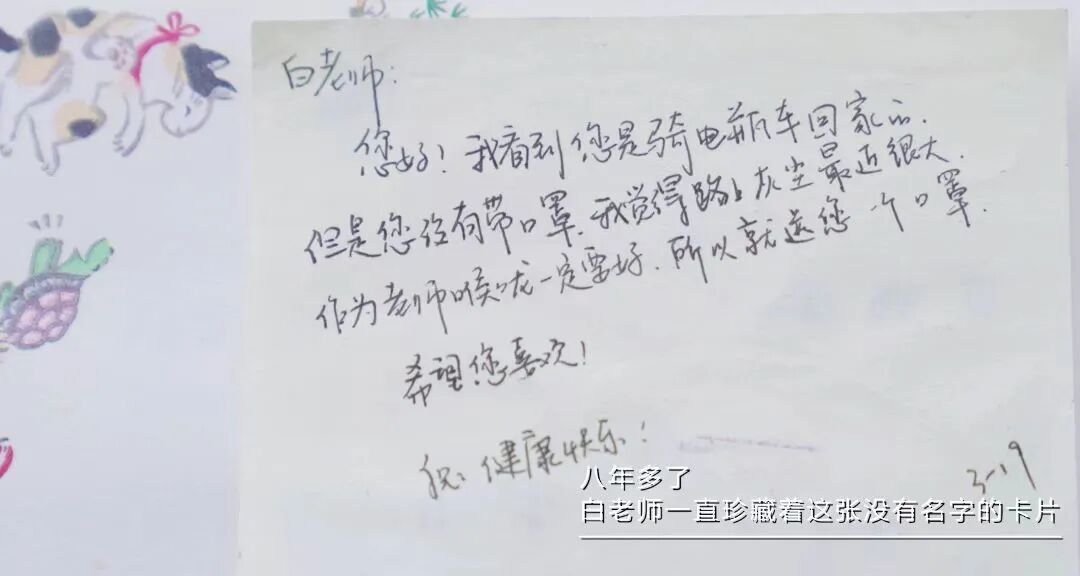 白老师:
您好!我看到您是骑电瓶车回家的.
但是您没有带口罩.我觉得路上灰尘最近很大.
作为老师喉咙一定要好.所以就送您一个口罩.
希望您喜欢!
祝:健康快乐!
3-19
八年多了
白老师一直珍藏着这张没有名字的卡片